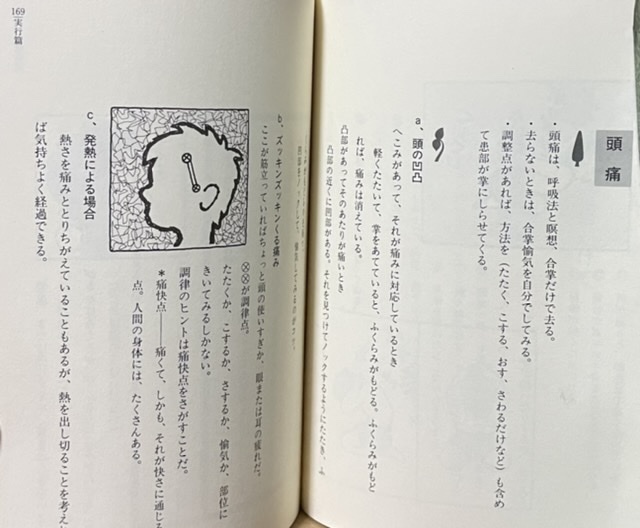 頭痛
・頭痛は、呼吸法と瞑想、合掌だけで去る。
・去らないときは、合掌愉気を自分でしてみる。
・調整点があれば、方法を（たたく、こする、おす、さわるだけなど）も含め
て患部が掌にしらせてくる。
a、頭の凹凸
へこみがあって、それが痛みに対応しているとき
軽くたたいて、掌をあてていると、ふくらみがもどる。ふくらみがもど
れば、痛みは消えている。
凸部があってそのあたりが痛いとき
凸部の近くに凹部がある。それを見つけてノックするようにたたき、ふ
b、ズッキンズッキンくる痛み
ここが筋立っていればちょっと頭の使いすぎか、眼または耳の疲れだ。
⊗⊗が調律点。
たたくか、こするか、さするか、愉気か、部位に
きいてみるしかない。
調律のヒントは痛快点をさがすことだ。
＊痛快点――痛くて、しかも、それが快さに通じる
点。人間の身体には、たくさんある。
c、発熱による場合
熱さを痛みととりちがえていることもあるが、熱を出し切ることを考え
ば気持ちよく経過できる。
169
実行篇